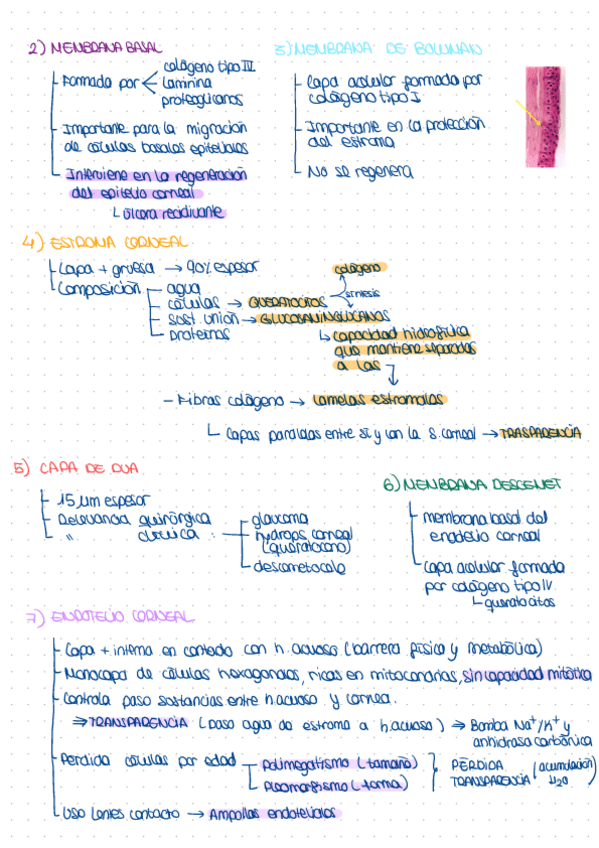 2) MEMBRANA BASAL
Formada por
colágeno tipo IV
laminina
proteoglicanos
Importante para la migración
de células basales epiteliales
Interviene en la regeneración
del epitelio corneal
úlcera recidivante
3) MEMBRANA DE BOWMAN
Capa acelular formada por
colágeno tipo I
Importante en la protección
del estroma
No se regenera
4) ESTROMA CORNEAL
Capa + gruesa → 90% espesor
Composición
agua
células → QUERATOCITOS
sust. unión → GLUCOSAMINGLUCANOS
proteínas
colágeno
síntesis
capacidad hidrofílica
que mantiene separadas
a las
- Fibras colágeno → lamelas estromales
Capas paralelas entre sí y con la s. corneal → TRASPARENCIA
5) CAPA DE DUA
15 µm espesor
Relevancia quirúrgica
" clínica :
glaucoma
hydrops corneal
(queratocono)
descemetocele
6) MEMBRANA DESCEMET
membrana basal del
endotelio corneal
Capa acelular formada
por colágeno tipo IV
queratocitos
7) ENDOTELIO CORNEAL
Capa + interna en contacto con h. acuoso (barrera física y metabólica)
Monocapa de células hexagonales, ricas en mitocondrias, sin capacidad mitótica
Controla paso sustancias entre h. acuoso y córnea.
⇒ TRANSPARENCIA (paso agua de estroma a h. acuoso) → Bomba Na⁺/K⁺ y
anhidrasa carbónica
Pérdida células por edad
Polimegatismo (tamaño)
Pleomorfismo (forma)
PÉRDIDA
TRANSPARENCIA
(acumulación
H₂O
Uso lentes contacto → Ampollas endoteliales